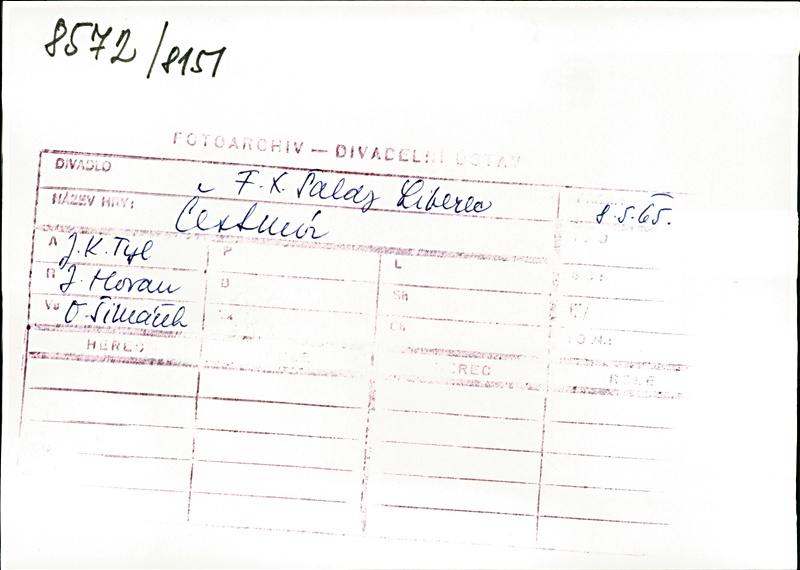 8572/8151
FOTOARCHIV — DIVADELNÍ ÚSTAV
DIVADLO F. X. Šaldy Liberec
8.5.65.
NÁZEV HRY: Čestmír
A J. K. Tyl P L
R J. Moran D Sh
Vs O. Šimáček Ch
HEREC
EREC ROLE